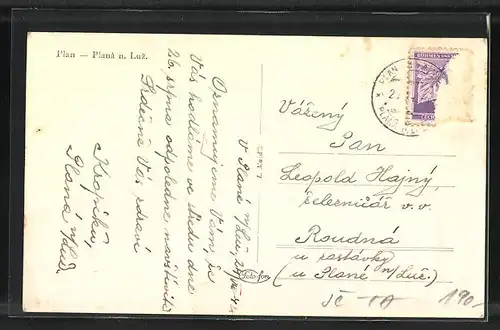 Plan — Planá n. Luž.
V Plané n/Luž.
Oznamujeme Vám, že
Vás hodláme ve středu dne
26. srpna odpoledne navštíviti.
Srdečně Vás zdraví
Planá n/Luž.
BÖHMEN
PLAN
Vážený
Pan
Leopold Hajný,
železničář v.v.
Roudná
u zastávky
(u Plané n/Luž.)
JČ-TA
190.-